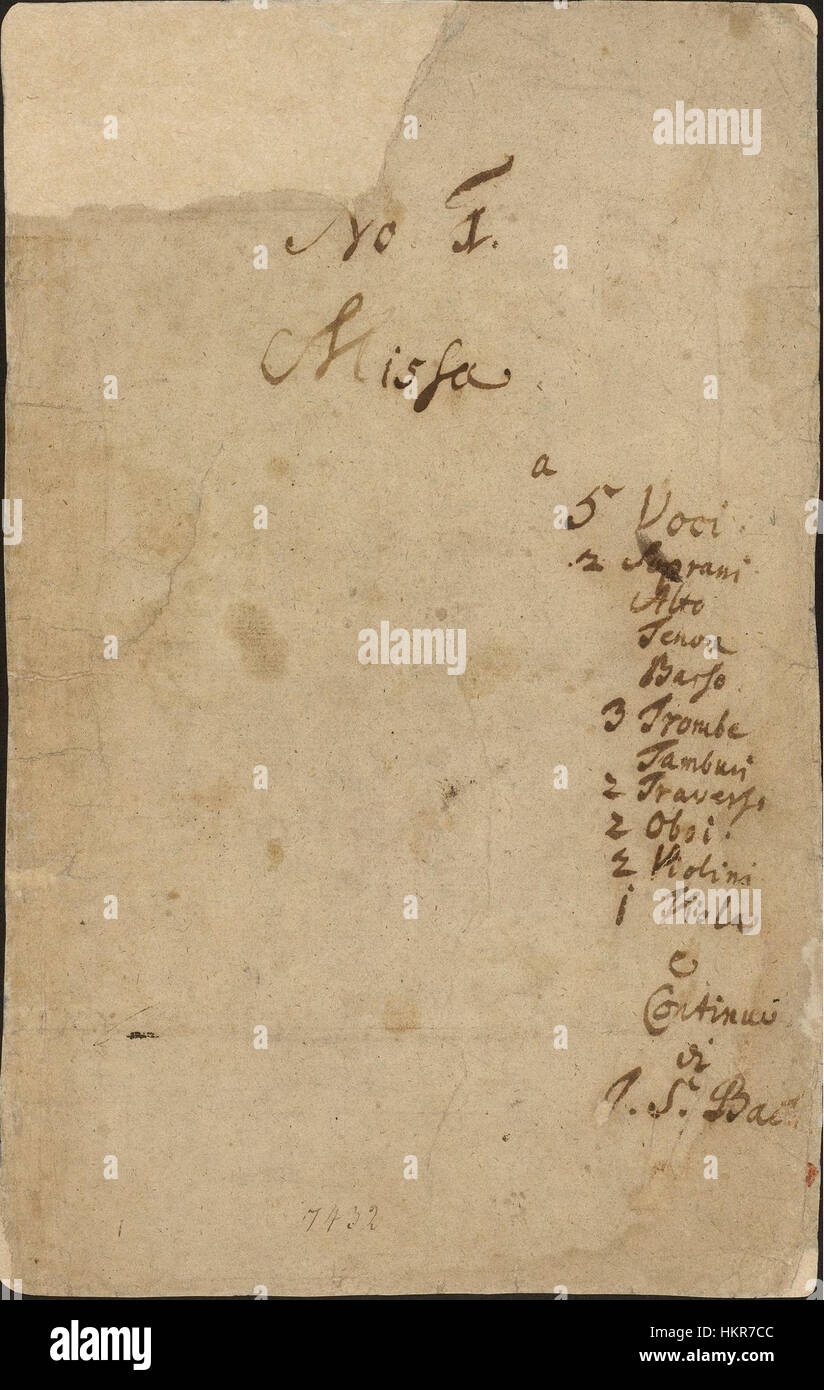 No I.
Missa
a
5 Voci.
2 Soprani.
Alto
Tenor
Basso
3 Trombe
Tamburi
2 Traverso
2 Oboi.
2 Violini
1 Viola
e
Continuo
di
J. S. Bach
7432
alamy
a
alamy
Image ID: HKR7CC
www.alamy.com